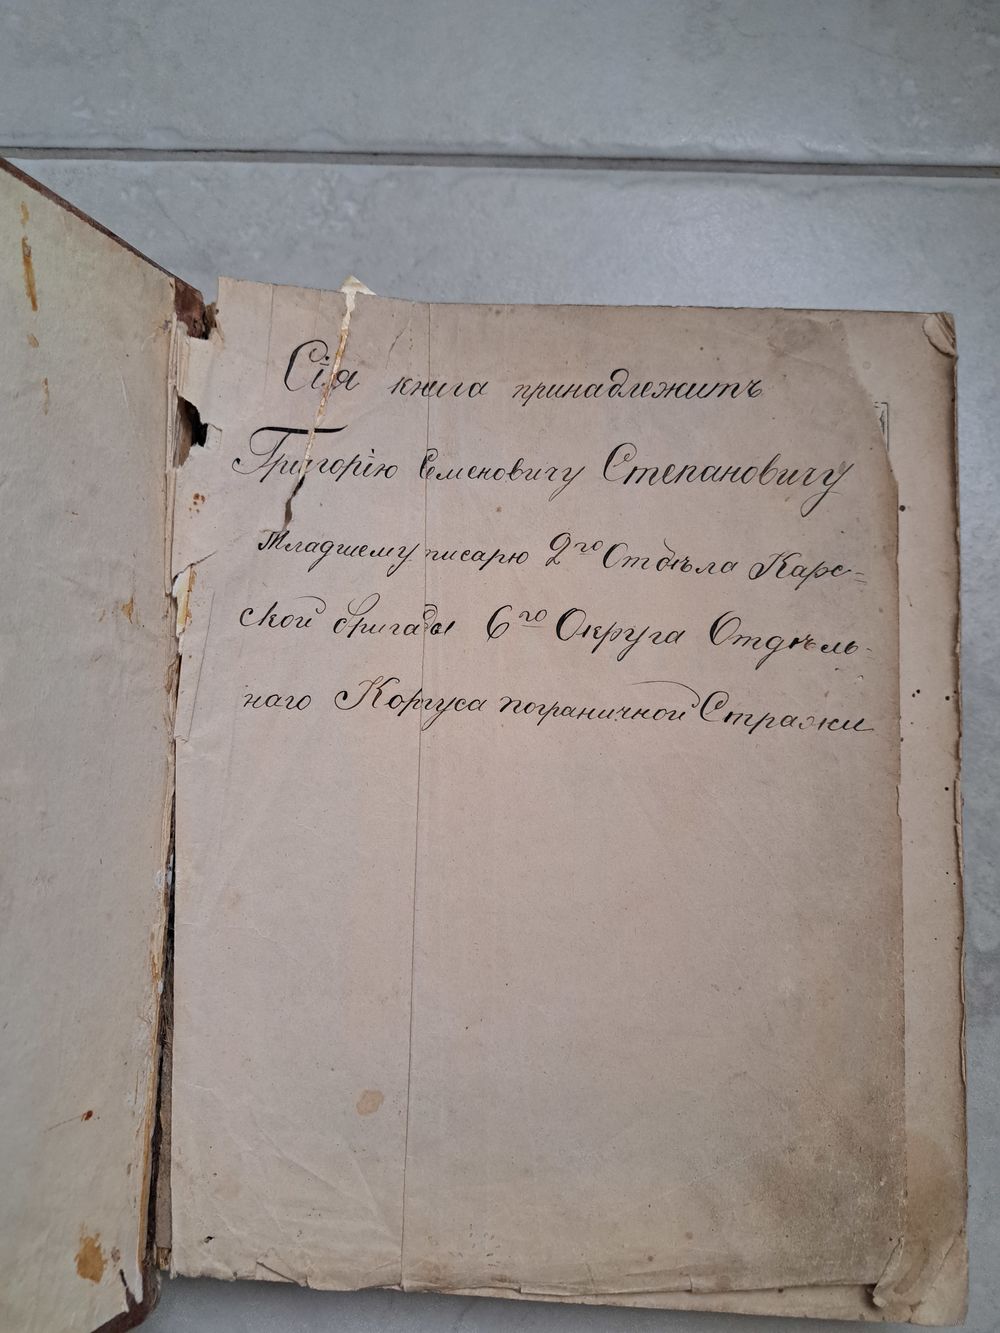 Сія книга принадлежитъ
Григорію Семеновичу Степановичу
Младшему писарю 2го Отдѣла Карс=
ской бригады 6го Округа Отдѣль-
наго Корпуса пограничной Стражи